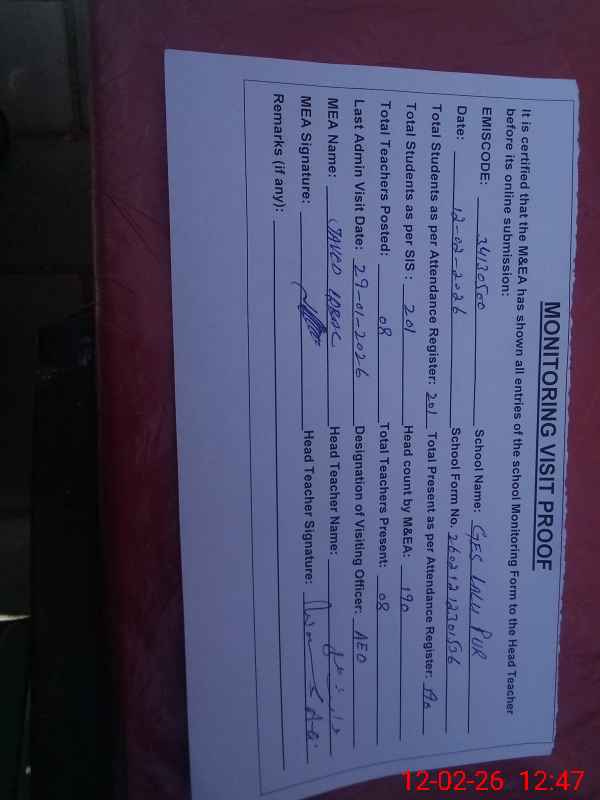 MONITORING VISIT PROOF
It is certified that the M&EA has shown all entries of the school Monitoring Form to the Head Teacher
before its online submission:
EMISCODE: 34130500 School Name: GES LALU PUR
Date: 12-02-2026 School Form No.
Total Students as per Attendance Register: 201 Total Present as per Attendance Register: 190
Total Students as per SIS : 201 Head count by M&EA: 190
Total Teachers Posted: 08 Total Teachers Present: 08
Last Admin Visit Date: 29-01-2026 Designation of Visiting Officer: AEO
MEA Name: JAVED Head Teacher Name:
MEA Signature: Head Teacher Signature:
Remarks (if any):
12-02-26 12:47